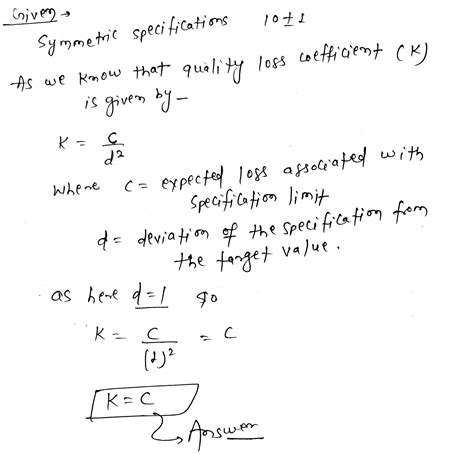 Given →
Symmetric specifications 10 ± 1
As we know that quality loss coefficient (K)
is given by —
K = C / d²
where C = expected loss associated with
specification limit
d = deviation of the specification from
the target value.
as here d = 1 so
K = C / (1)² = C
K = C
Answer